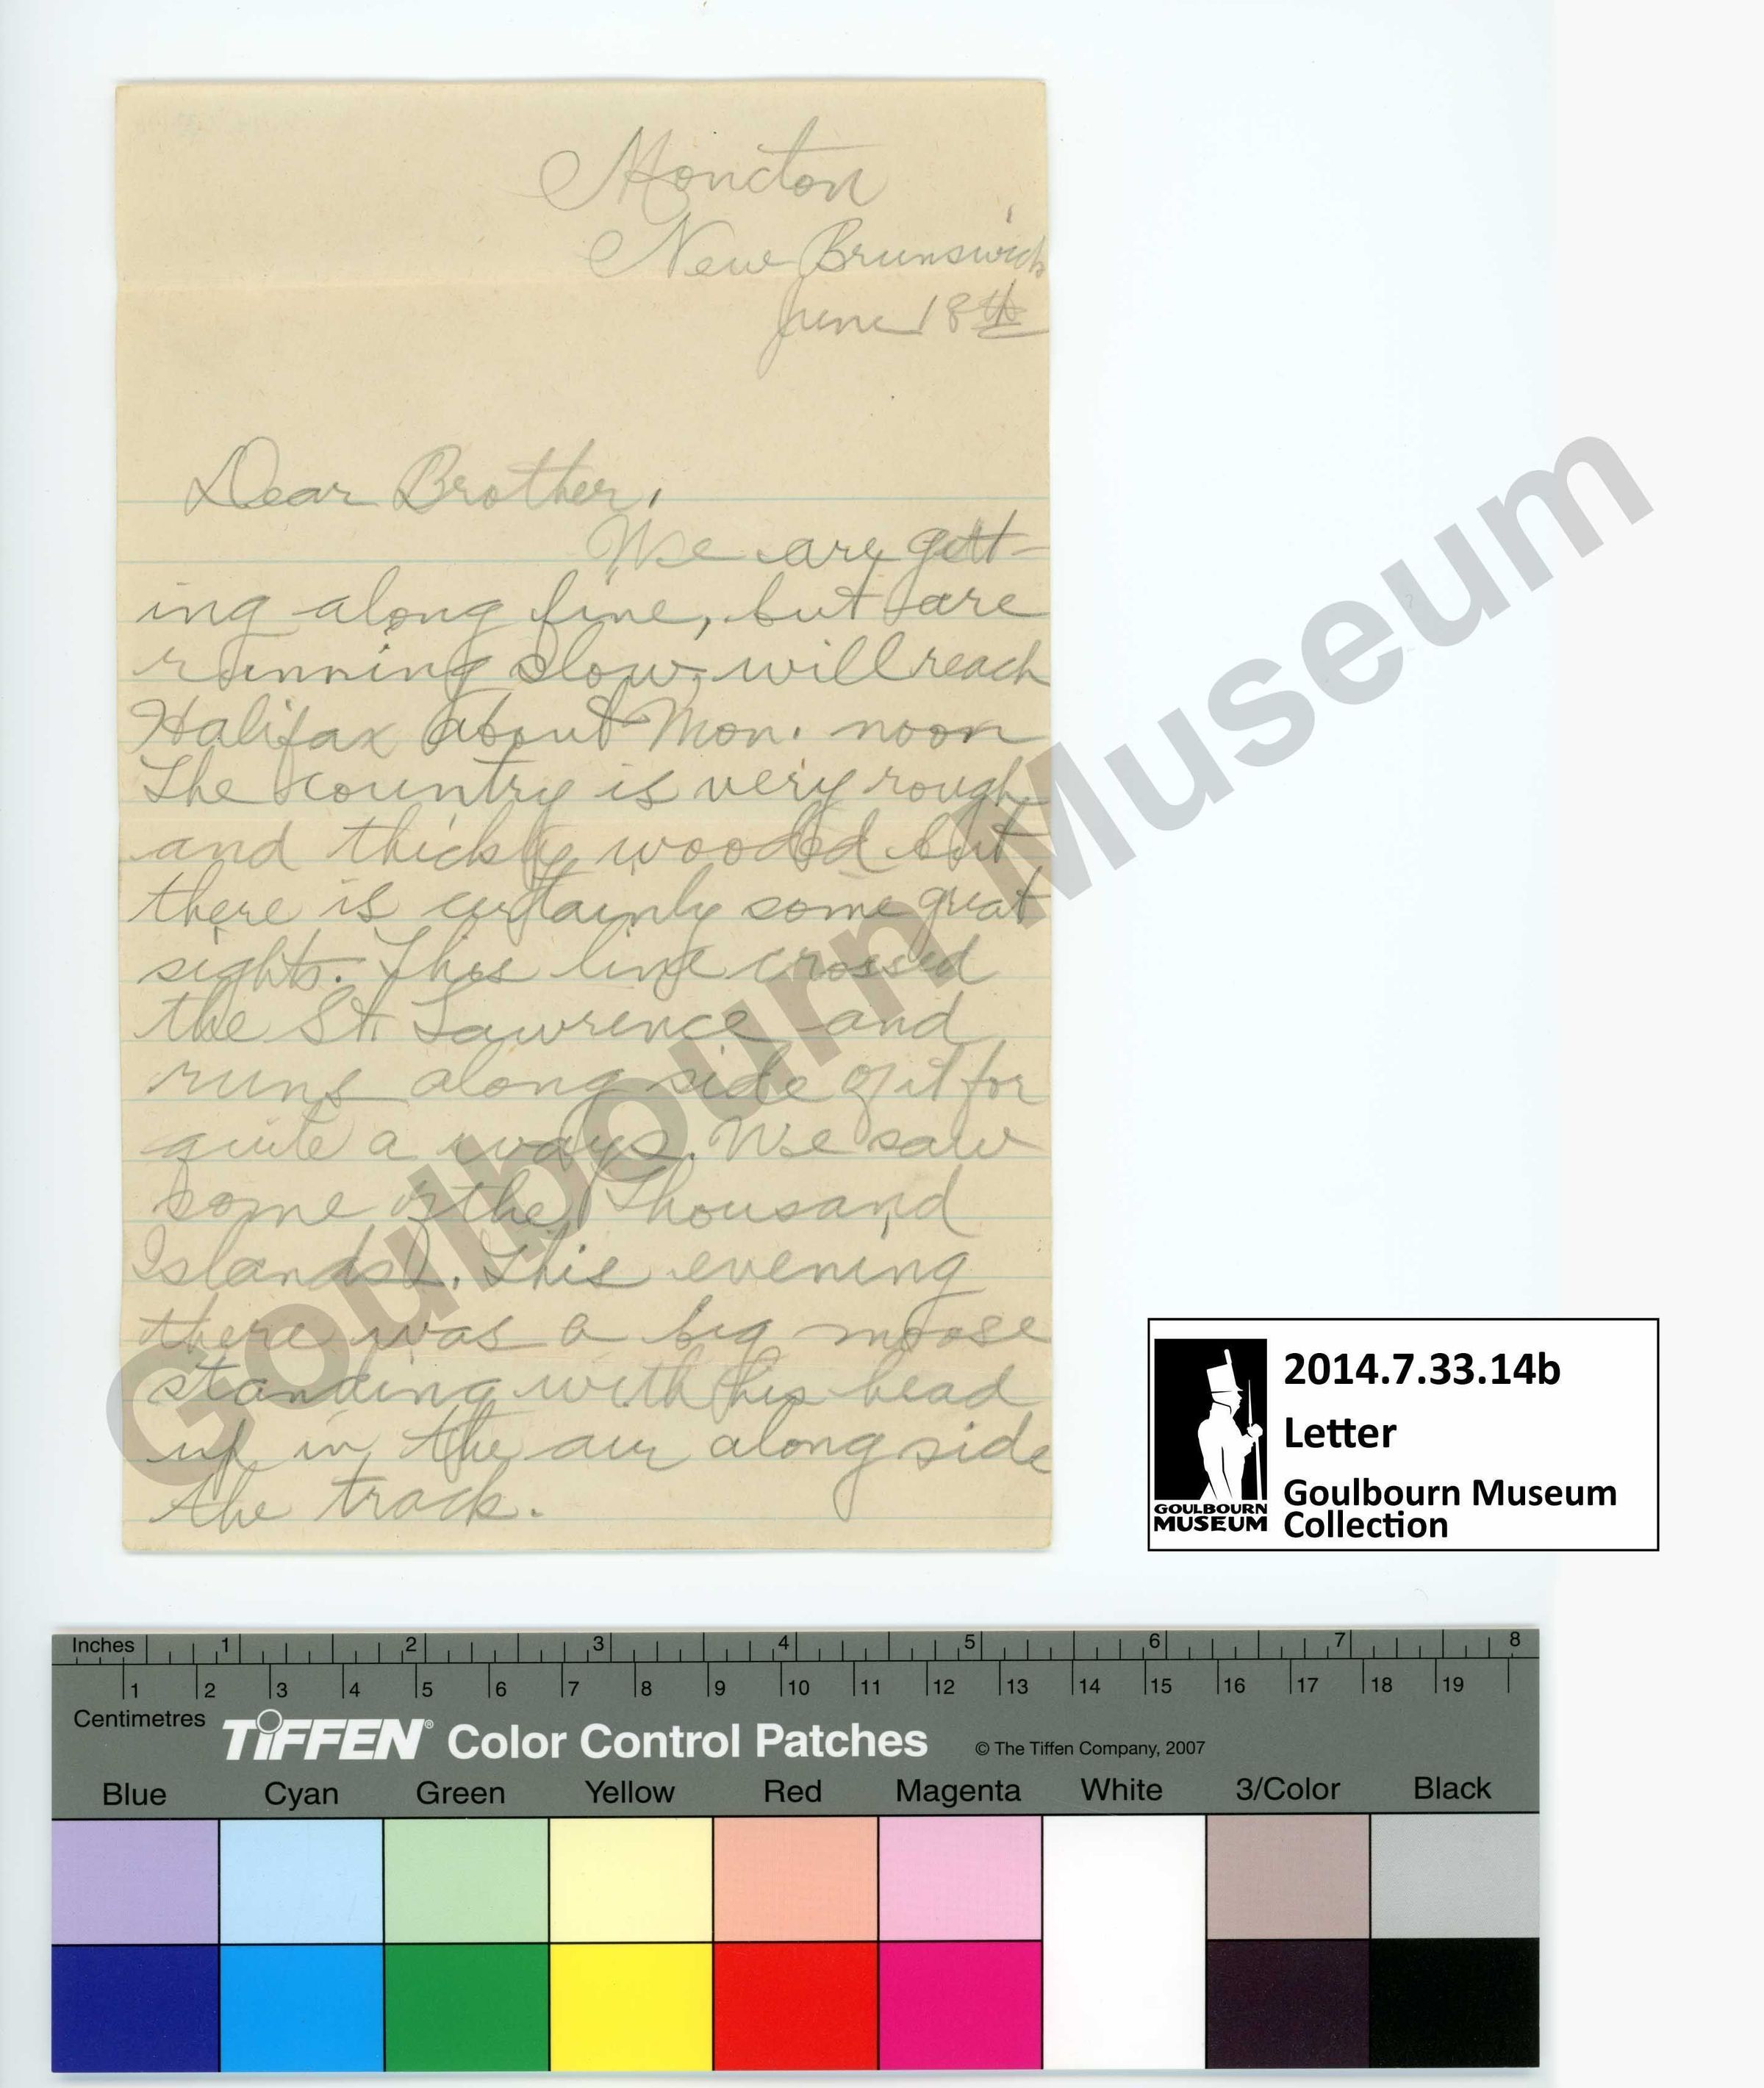 Moncton
New Brunswick
June 18th
Dear Brother,
We are gett-
ing along fine, but are
running slow, will reach
Halifax about Mon. noon
The country is very rough
and thickly wooded but
there is certainly some great
sights. This line crossed
the St. Lawrence and
runs along side of it for
quite a ways. We saw
some of the Thousand
Islands. This evening
there was a big moose
standing with his head
up in the air along side
the track.
Goulbourn Museum
2014.7.33.14b
Letter
Goulbourn Museum
Collection
GOULBOURN
MUSEUM
Inches 1 2 3 4 5 6 7 8
1 2 3 4 5 6 7 8 9 10 11 12 13 14 15 16 17 18 19
Centimetres
TIFFEN® Color Control Patches © The Tiffen Company, 2007
Blue Cyan Green Yellow Red Magenta White 3/Color Black